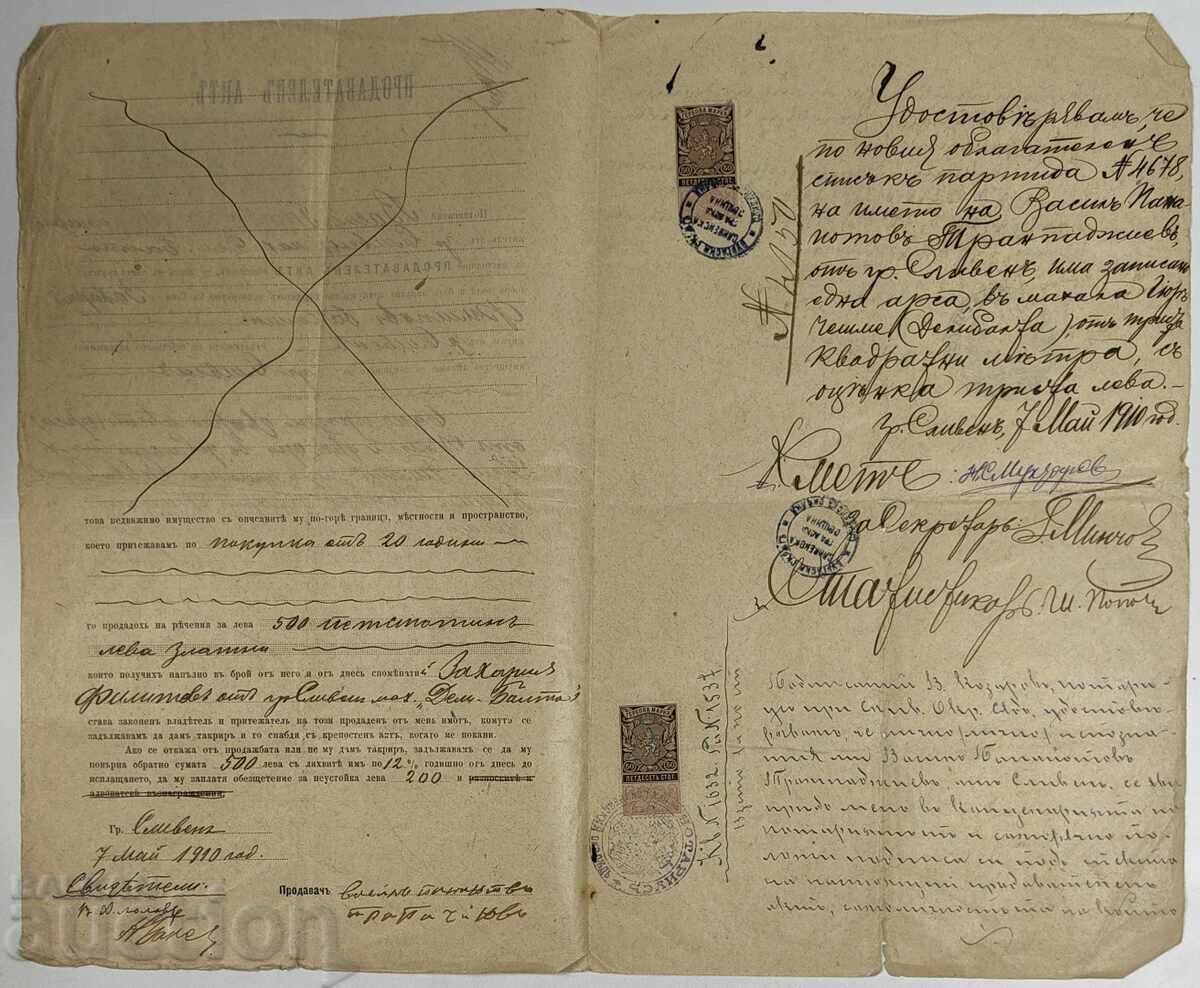 ПРОДАВАТЕЛЕНЪ АКТЪ
това недвижимо имущество съ описаните му по-горѣ граници, мѣстности и пространство,
което притежавамъ по покупка отъ 20 години
го продадохъ на рѣчения за лева 500 петстотинъ
лева златни
които получихъ напълно въ брой отъ него и отъ днесь споменатий Захария
Филиповъ отъ гр. Сливенъ мах. „Дели-Балта"
става законенъ владѣтель и притежатель на този продаденъ отъ мень имотъ, комуто се
задължавамъ да дамъ такриръ и го снабдя съ крепостенъ актъ, когато ме покани.
Ако се откажа отъ продажбата или не му дамъ такриръ, задължавамъ се да му
повърна обратно сумата 500 лева съ лихвитѣ имъ по 12% годишно отъ днесь до
исплащането, да му заплатя обезщетение за неустойка лева 200 и разноскитѣ и
адвокатска възнаграждения.
Гр. Сливенъ
7 май 1910 год.
Свидѣтели:
Продавачъ
ГЕРБОВА МАРКА
50 50
ПЕТДЕСЕТЬ СТОТ.
СЛИВЕНСКА
ГРАДСКА
ОБЩИНА
№ 4150
Удостовѣрявамъ, че
по новия облагателенъ
списъкъ партида №4678,
на името на Василъ Пана-
йотовъ Трантаджиевъ
отъ гр. Сливенъ, има записана
една арса, въ махала Гюръ
чешме (Деликанга), отъ триста
квадратни мѣтра, съ
оцѣнка триста лева.–
гр. Сливенъ, 7 Май 1910 год.
Кметъ:
СЛИВЕНСКА
ГРАДСКА
ОБЩИНА
За Секретарь: Г. Минчо
ГЕРБОВА МАРКА
50 50
ПЕТДЕСЕТЬ СТОТ.
НОТАРИУСЪ
Кн. № 1632 Рг. № 1537
Подписаний В. Козаровъ, нотари-
усъ при Слив. Окр. Съд, удостовѣ-
рявамъ, че личнитѣ и позна-
тия ми Василъ Панайотовъ
Трантаджиевъ, отъ Сливенъ, се яви
предъ мене въ Канцеларията на
нотариата и саморъчно по-
ложи подписа си подъ текста
на настоящий продавателенъ
актъ, самоличността на който